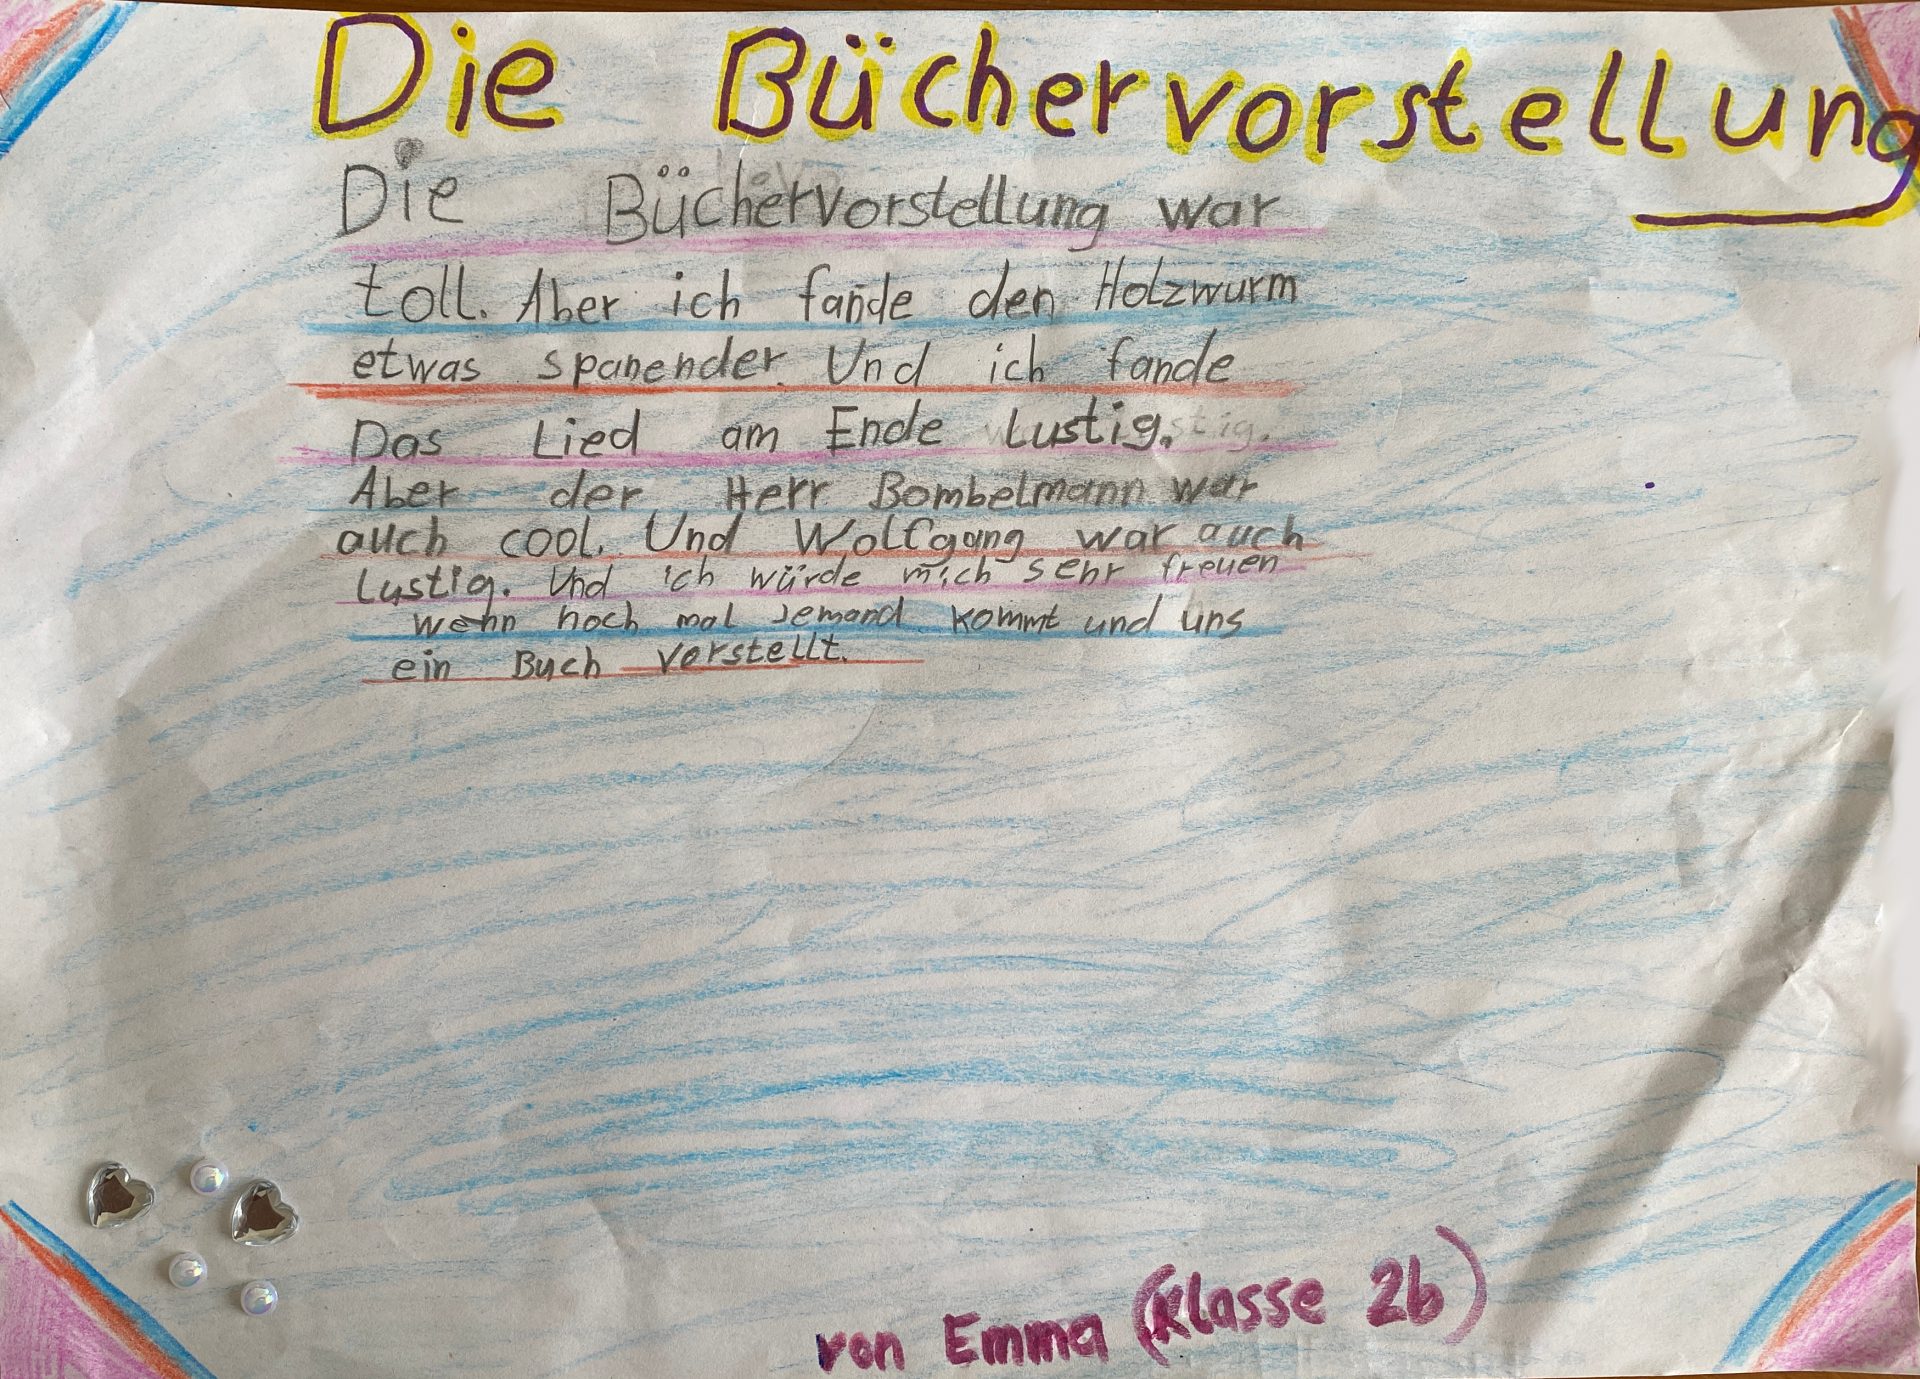 Die Büchervorstellung
Die Büchervorstellung war
toll. Aber ich fande den Holzwurm
etwas spanender. Und ich fande
Das Lied am Ende Lustig.
Aber der Herr Bombelmann war
auch cool. Und Wolfgang war auch
Lustig. Und ich würde mich sehr freuen
wenn noch mal Jemand kommt und uns
ein Buch vorstellt.
von Emma (Klasse 2b)